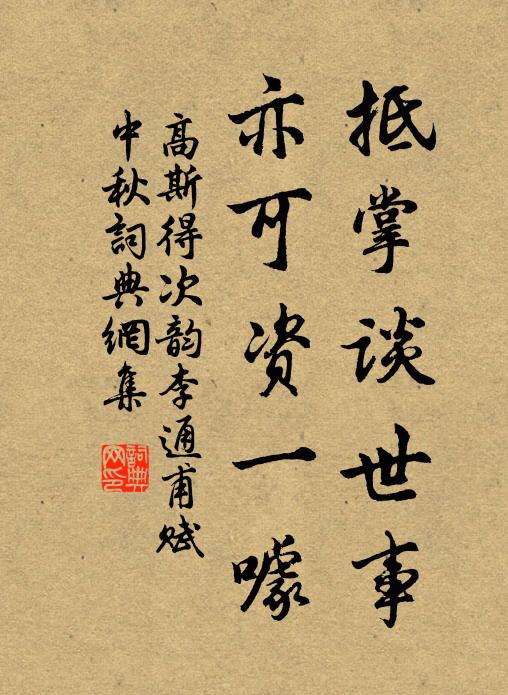 抵掌談世事
亦可资一噱
高斯得次韵李通甫賦
中秋詞典網集
詞典网印